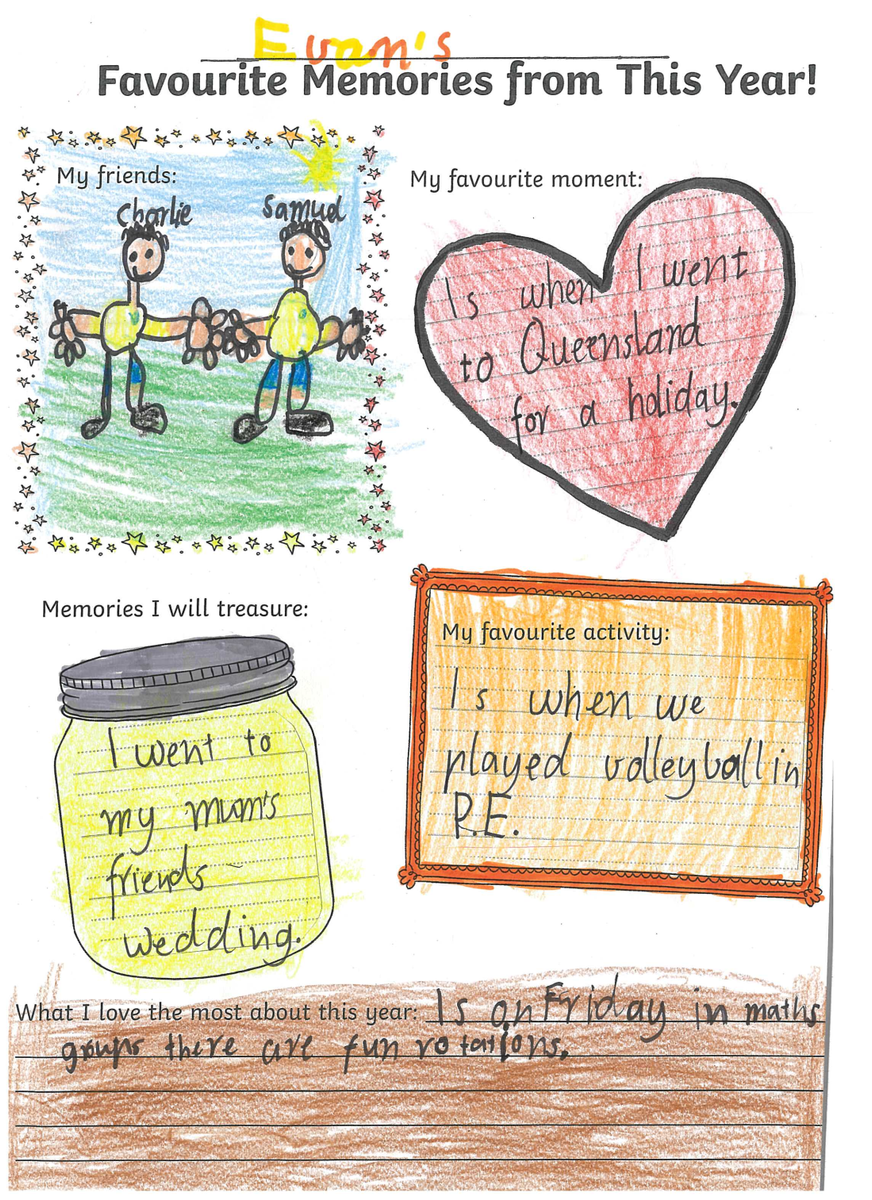 Evan's
Favourite Memories from This Year!
My friends:
Charlie
Samuel
My favourite moment:
Is when I went
to Queensland
for a holiday.
Memories I will treasure:
I went to
my mum's
friends
wedding.
My favourite activity:
Is when we
played volleyball in
P.E.
What I love the most about this year: Is on Friday in maths
groups there are fun rotations.